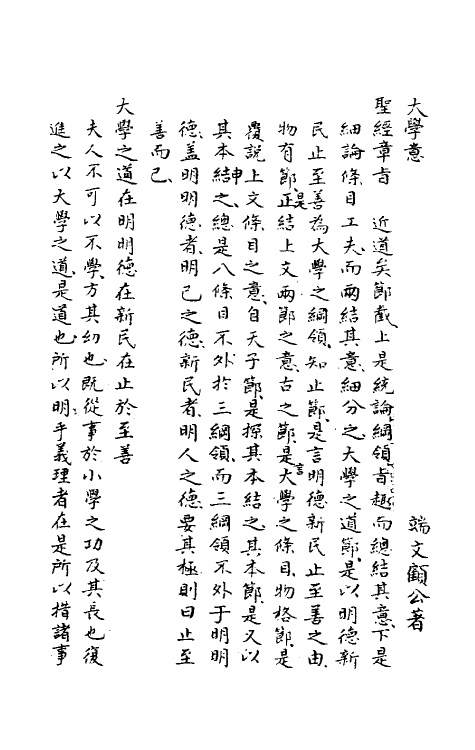 大學意
端文顧公著
聖經章旨　近道矣節截上是統論綱領旨趣而總結其意下是
細論條目工夫而兩結其意細分之大學之道節是以明德新
民止至善為大學之綱領知止節是言明德新民止至善之由
物有節是正結上文兩節之意古之節是言大學之條目物格節是
覆說上文條目之意自天子節是探其本結之其本節是又以
其本申結之總是八條目不外於三綱領而三綱領不外于明明
德蓋明明德者明己之德新民者明人之德要其極則曰止至
善而已
大學之道在明明德在新民在止於至善
夫人不可以不學方其幼也既從事於小學之功及其長也復
進之以大學之道是道也所以明乎義理者在是所以措諸事